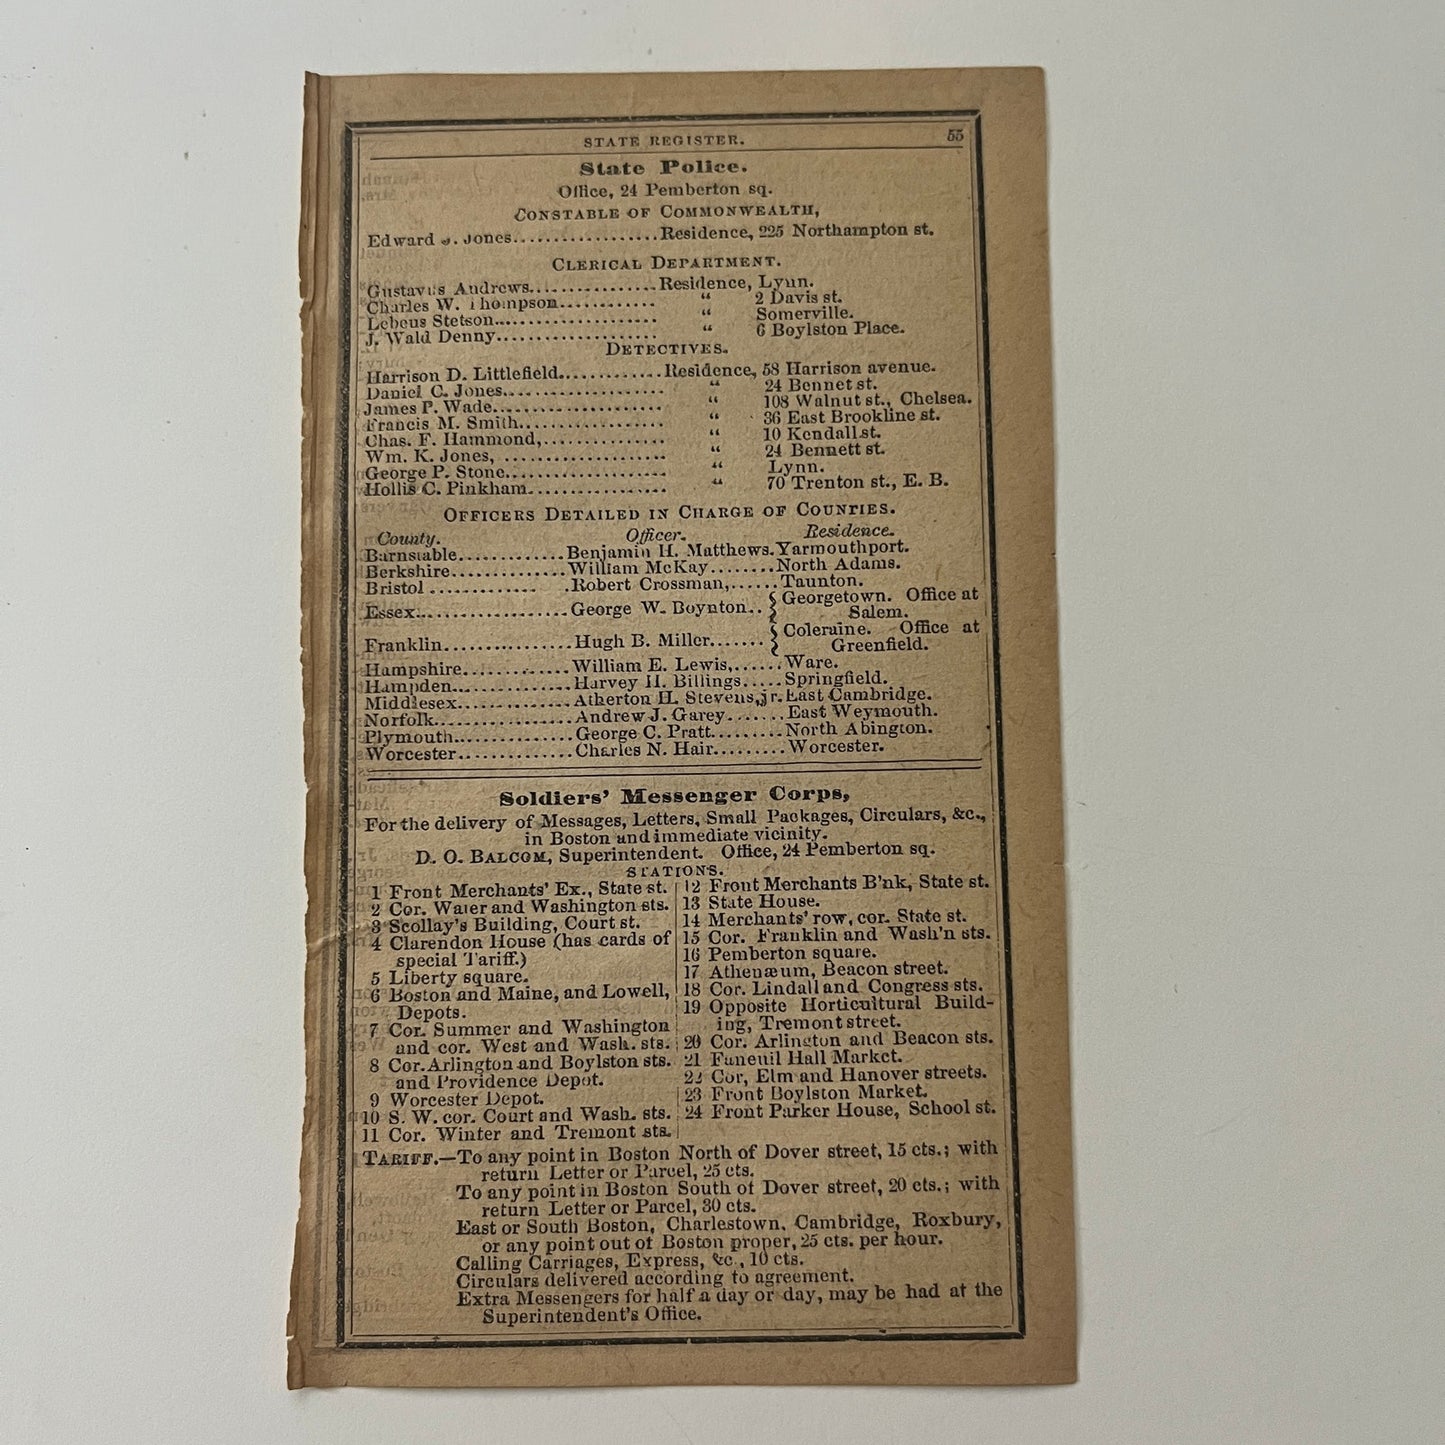 STATE REGISTER. 55
State Police.
Office, 24 Pemberton sq.
CONSTABLE OF COMMONWEALTH,
Edward J. Jones..................Residence, 225 Northampton st.
CLERICAL DEPARTMENT.
Gustavus Andrews................Residence, Lynn.
Charles W. Thompson............ “ 2 Davis st.
Lebeus Stetson.................... “ Somerville.
J. Wald Denny.................... “ 6 Boylston Place.
DETECTIVES.
Harrison D. Littlefield.............Residence, 58 Harrison avenue.
Daniel C. Jones.................... “ 24 Bennet st.
James P. Wade..................... “ 108 Walnut st., Chelsea.
Francis M. Smith.................. “ 36 East Brookline st.
Chas. F. Hammond,............... “ 10 Kendall st.
Wm. K. Jones, .................... “ 24 Bennett st.
George P. Stone.................... “ Lynn.
Hollis C. Pinkham................. “ 70 Trenton st., E. B.
OFFICERS DETAILED IN CHARGE OF COUNTIES.
County. Officer. Residence.
Barnstable.............Benjamin H. Matthews.Yarmouthport.
Berkshire..............William McKay........North Adams.
Bristol ............. .Robert Crossman,......Taunton.
Essex...................George W. Boynton.. { Georgetown. Office at
Salem.
Franklin................Hugh B. Miller....... { Coleraine. Office at
Greenfield.
Hampshire..............William E. Lewis,......Ware.
Hampden...............Harvey H. Billings.....Springfield.
Middlesex..............Atherton H. Stevens,jr.East Cambridge.
Norfolk.................Andrew J. Garey.......East Weymouth.
Plymouth...............George C. Pratt.........North Abington.
Worcester..............Charles N. Hair.........Worcester.
Soldiers’ Messenger Corps,
For the delivery of Messages, Letters, Small Packages, Circulars, &c.,
in Boston and immediate vicinity.
D. O. BALCOM, Superintendent. Office, 24 Pemberton sq.
STATIONS.
1 Front Merchants’ Ex., State st.
2 Cor. Water and Washington sts.
3 Scollay’s Building, Court st.
4 Clarendon House (has cards of
special Tariff.)
5 Liberty square.
6 Boston and Maine, and Lowell,
Depots.
7 Cor. Summer and Washington
and cor. West and Wash. sts.
8 Cor. Arlington and Boylston sts.
and Providence Depot.
9 Worcester Depot.
10 S. W. cor. Court and Wash. sts.
11 Cor. Winter and Tremont sts.
12 Front Merchants B’nk, State st.
13 State House.
14 Merchants’ row, cor. State st.
15 Cor. Franklin and Wash’n sts.
16 Pemberton square.
17 Athenæum, Beacon street.
18 Cor. Lindall and Congress sts.
19 Opposite Horticultural Build-
ing, Tremont street.
20 Cor. Arlington and Beacon sts.
21 Faneuil Hall Market.
22 Cor, Elm and Hanover streets.
23 Front Boylston Market.
24 Front Parker House, School st.
TARIFF.—To any point in Boston North of Dover street, 15 cts.; with
return Letter or Parcel, 25 cts.
To any point in Boston South of Dover street, 20 cts.; with
return Letter or Parcel, 30 cts.
East or South Boston, Charlestown, Cambridge, Roxbury,
or any point out of Boston proper, 25 cts. per hour.
Calling Carriages, Express, &c., 10 cts.
Circulars delivered according to agreement.
Extra Messengers for half a day or day, may be had at the
Superintendent’s Office.